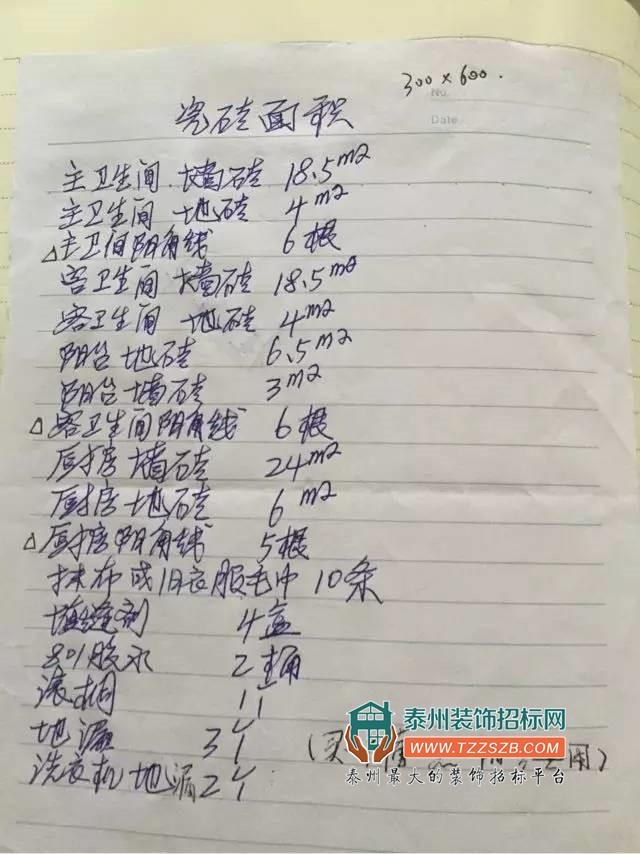 300×600.
No.
Date
瓷砖面积
主卫生间 墙砖 18.5m2
主卫生间 地砖 4m2
△主卫间阴角线 6根
客卫生间 墙砖 18.5m2
客卫生间 地砖 4m2
阳台地砖 6.5m2
阳台墙砖 3m2
△客卫生间阴角线 6根
厨房墙砖 24m2
厨房地砖 6m2
△厨房阴角线 5根
抹布或旧衣服毛巾 10条
填缝剂 4盒
801胶水 2桶
滚桐 1个
地漏 3个 (买
用)
洗衣机地漏2个
泰州装饰招标网
WWW.TZZSZB.COM
泰州最大的装饰招标平台